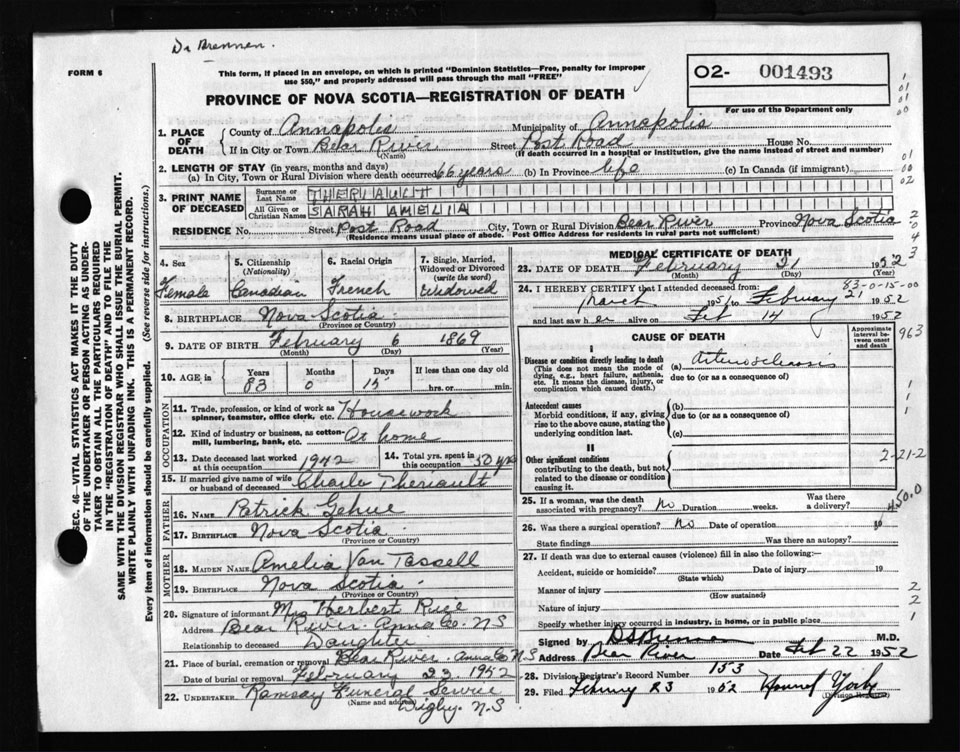 Dr Brennen.
FORM 6
This form, if placed in an envelope, on which is printed "Dominion Statistics—Free, penalty for improper
use $50," and properly addressed will pass through the mail "FREE"
O2- 001493
For use of the Department only
PROVINCE OF NOVA SCOTIA—REGISTRATION OF DEATH
1. PLACE OF DEATH { County of Annapolis Municipality of Annapolis
If in City or Town Bear River (Name) Street Post Road House No.
(If death occurred in a hospital or institution, give the name instead of street and number)
2. LENGTH OF STAY (in years, months and days)
(a) In City, Town or Rural Division where death occurred 66 years (b) In Province life (c) In Canada (if immigrant)
3. PRINT NAME OF DECEASED { Surname or Last Name THERIAULT
All Given or Christian Names SARAH AMELIA
RESIDENCE No. Street Post Road City, Town or Rural Division Bear River Province Nova Scotia
(Residence means usual place of abode. Post Office Address for residents in rural parts not sufficient)
4. Sex 5. Citizenship (Nationality) 6. Racial Origin 7. Single, Married, Widowed or Divorced (write the word)
Female Canadian French Widowed
8. BIRTHPLACE Nova Scotia
(Province or Country)
9. DATE OF BIRTH February 6 1869
(Month) (Day) (Year)
10. AGE in { Years Months Days If less than one day
83 0 15 hrs. or min.
OCCUPATION
11. Trade, profession, or kind of work as spinner, teamster, office clerk, etc. Housework
12. Kind of industry or business, as cotton-mill, lumbering, bank, etc. At home
13. Date deceased last worked at this occupation 1942 14. Total yrs. spent in this occupation 50 yrs
15. If married give name of wife or husband of deceased Charle Theriault
FATHER
16. NAME Patrick Gehue
17. BIRTHPLACE Nova Scotia
(Province or Country)
MOTHER
18. MAIDEN NAME Amelia Van Tassell
19. BIRTHPLACE Nova Scotia
(Province or Country)
20. Signature of informant Mrs Herbert Rice
Address Bear River Anna Co. NS
Relationship to deceased Daughter
21. Place of burial, cremation or removal Bear River Anna Co N S
Date of burial or removal February 23 1952
22. UNDERTAKER Ramsay Funeral Service
(Name and address) Digby. N.S.
MEDICAL CERTIFICATE OF DEATH
23. DATE OF DEATH February 21 1952
(Month) (Day) (Year)
83-0-15-00
24. I HEREBY CERTIFY that I attended deceased from:
March 1951 to February 21 1952
and last saw h er alive on Feb 14 1952
CAUSE OF DEATH
Approximate interval between onset and death
963
I
Disease or condition directly leading to death
(This does not mean the mode of dying, e.g., heart failure, asthenia, etc. It means the disease, injury, or complication which caused death.)
(a) Arteriosclerosis
due to (or as a consequence of)
Antecedent causes
Morbid conditions, if any, giving rise to the above cause, stating the underlying condition last.
(b)
due to (or as a consequence of)
(c)
II
Other significant conditions
contributing to the death, but not related to the disease or condition causing it.
2-21-2
25. If a woman, was the death associated with pregnancy? No Duration weeks. Was there a delivery?
450.0
26. Was there a surgical operation? No Date of operation
State findings Was there an autopsy?
27. If death was due to external causes (violence) fill in also the following:—
Accident, suicide or homicide? (State which) Date of injury 19
Manner of injury
(How sustained)
Nature of injury
Specify whether injury occurred in industry, in home, or in public place
Signed by M.D.
Address Bear River Date Feb 22 1952
28. Division Registrar's Record Number 153
29. Filed February 23 1952
(Division Registrar)
SEC. 46—VITAL STATISTICS ACT MAKES IT THE DUTY
OF THE UNDERTAKER OR PERSON ACTING AS UNDER-
TAKER TO OBTAIN ALL THE PARTICULARS REQUIRED
IN THE "REGISTRATION OF DEATH" AND TO FILE THE
SAME WITH THE DIVISION REGISTRAR WHO SHALL ISSUE THE BURIAL PERMIT.
WRITE PLAINLY WITH UNFADING INK. THIS IS A PERMANENT RECORD.
Every item of information should be carefully supplied. (See reverse side for instructions.)